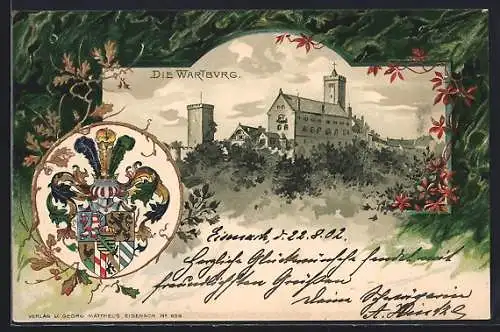 DIE WARTBURG.
Eisenach, d. 22.8.02.
Herzliche Glückwünsche sendet mit
freundlichen Grüßen
deine Schwägerin
VERLAG V. GEORG MATTHEUS EISENACH Nº